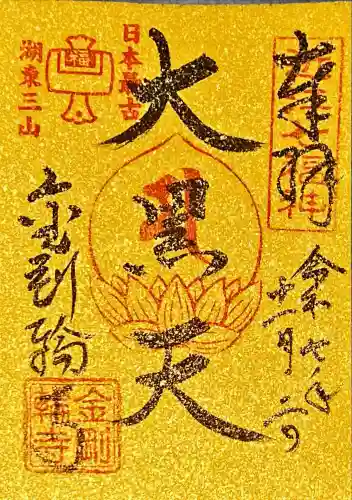 奉拝
令和七年
十一月二日
日本最古
湖東三山
福
大黒天
金剛輪寺
金剛
輪寺